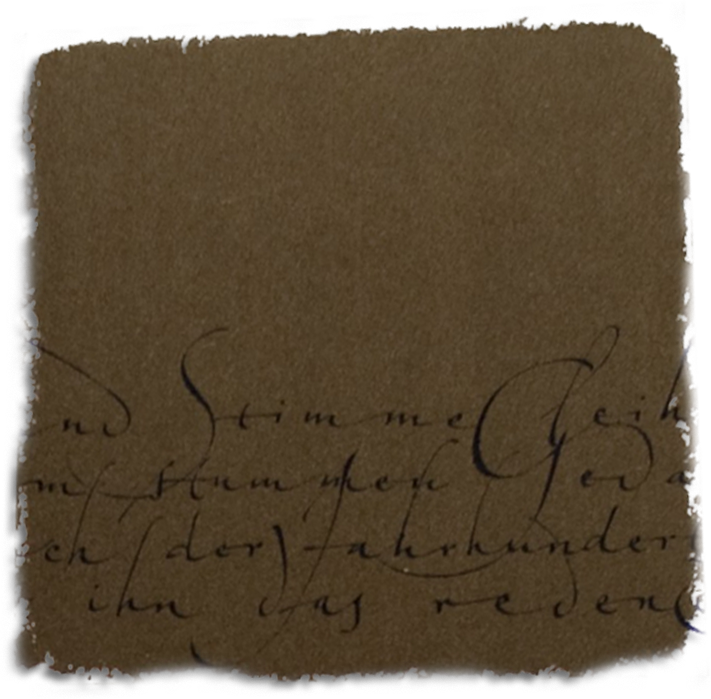 nd Stimme leih
m stummen Geda
ch der Jahrhunder
ihn das reden